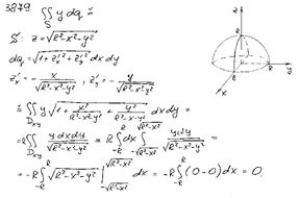 3879 ∬_S y dq =
S: z = √(R²-x²-y²)
dq = √(1+z'ₓ²+z'ᵧ²) dx dy
z'ₓ = -x/√(R²-x²-y²), z'ᵧ = -y/√(R²-x²-y²)
= ∬_Dxy y √(1 + x²/(R²-x²-y²) + y²/(R²-x²-y²)) dx dy =
= R ∬_Dxy y dx dy/√(R²-x²-y²) = R ∫_{-R}^{R} dx ∫_{-√(R²-x²)}^{√(R²-x²)} y dy/√(R²-x²-y²) =
= -R ∫_{-R}^{R} √(R²-x²-y²) |_{-√(R²-x²)}^{√(R²-x²)} dx = -R ∫_{-R}^{R} (0-0) dx = 0.
z
R
R
y
x